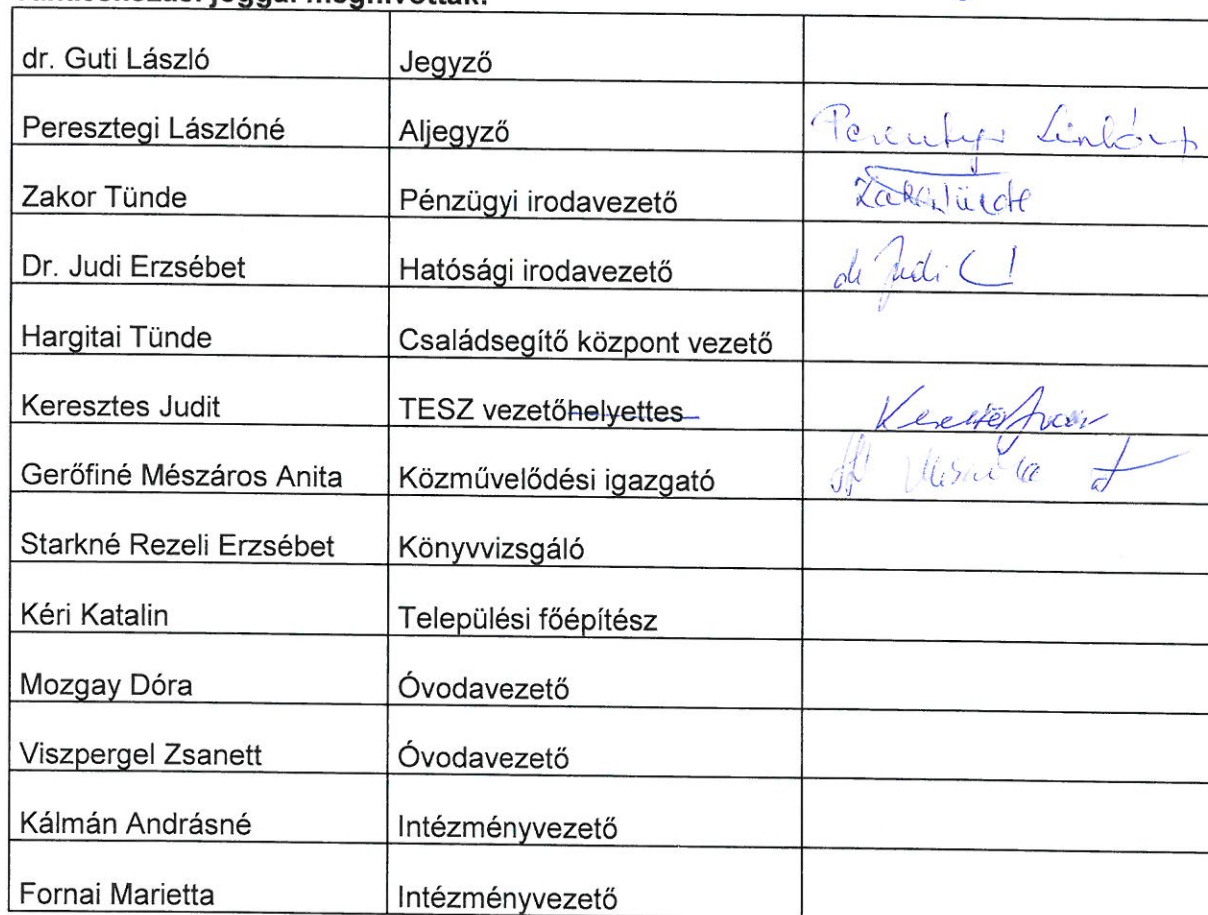 dr. Guti László Jegyző
Peresztegi Lászlóné Aljegyző
Zakor Tünde Pénzügyi irodavezető Zakor Tünde
Dr. Judi Erzsébet Hatósági irodavezető dr Judi
Hargitai Tünde Családsegítő központ vezető
Keresztes Judit TESZ vezetőhelyettes
Gerőfiné Mészáros Anita Közművelődési igazgató
Starkné Rezeli Erzsébet Könyvvizsgáló
Kéri Katalin Települési főépítész
Mozgay Dóra Óvodavezető
Viszpergel Zsanett Óvodavezető
Kálmán Andrásné Intézményvezető
Fornai Marietta Intézményvezető